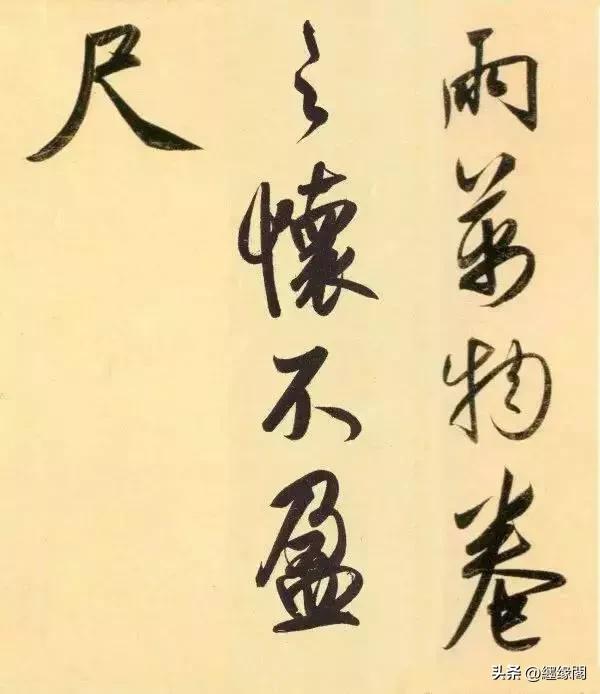 雨萬物卷
之懷不盈
尺
头条 @纒缘閣